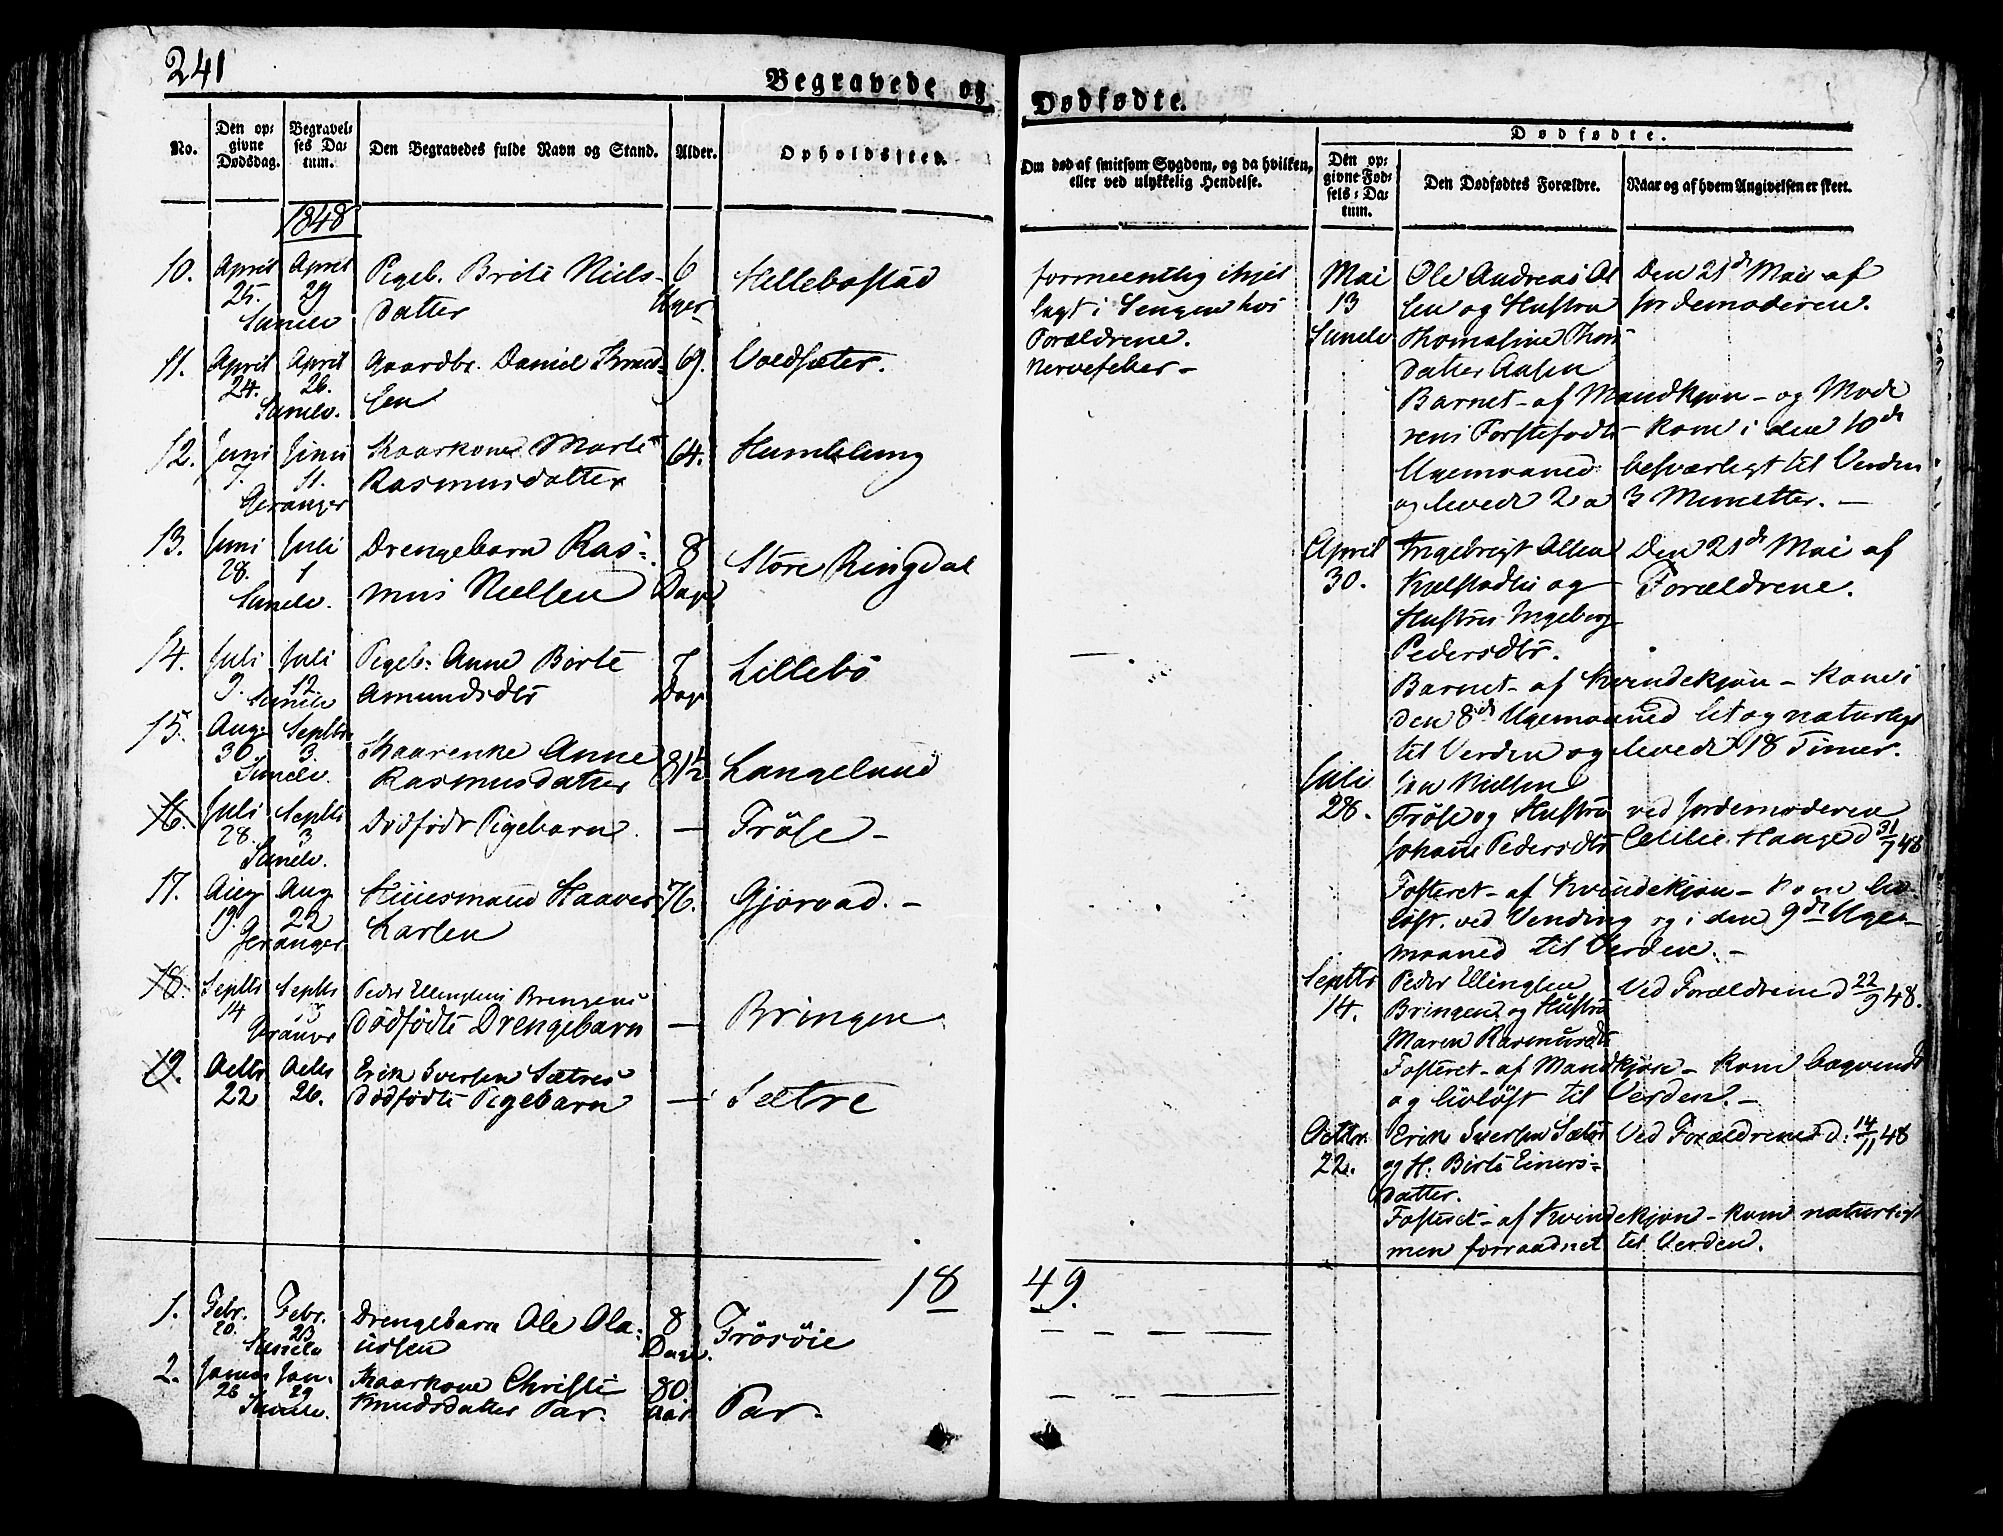 241
Begravede og Dødfødte.
No.
Den opgivne Dødsdag.
Begravelses Datum.
Den Begravedes fulde Navn og Stand.
Alder.
Opholdssted.
Om død af smitsom Sygdom, og da hvilken,
eller ved ulykkelig Hendelse.
Dødfødte.
Den opgivne Fødsels-Datum.
Den Dødfødtes Forældre.
Naar og af hvem Angivelsen er skeet.
1848
10. April 25. April 29 Sunelv Pigeb. Brite Niels-
datter 6 Uger Hellebostad
formeentlig ihjel
lagt i Sengen hos
Forældrene.
11. April 24. April 26. Sunelv. Gaardbr. Daniel Knud-
sen 69. Voldsæter.
Nervefeber -
12. Juni 7. Juni 11. Geranger Kaarkone Marte
Rasmusdatter 64. Humlung
13. Juni 28. Juli 1 Sunelv. Drengebarn Ras-
mus Nielsen 8 Dage Store Ringdal
14. Juli 9. Juli 12 Sunelv Pigeb. Anne Birte
Amundsdtr 7 Dage Lillebø
15. Aug. 30 Septbr 3. Sunelv. Kaarenke Anne
Rasmusdatter 81½ Langelund
16. Juli 28. Septbr 3 Sunelv. Dødfødt Pigebarn. - Frøse -
17. Aug 19. Aug 22 Geranger Huusmand Haaver
Larsen 76. Gjørvad. -
18. Septbr 14 Septbr Geranger Peder Ellingsens Bringens
dødfødte Drengebarn - Bringen
19. Octbr 22 Octbr 26. Erik Iversen Sætres
dødfødte Pigebarn - Sætre
Mai 13 Sunelv Ole Andreas Ol
sen og Hustru
Thomasine Thors
datter Aasen
Den 21de Mai af
Jordemoderen.
Barnet - af Mandkjøn - og Mode
rens Førstefødte - kom i den 10de
Ugemaaned besværligt til Verden
og levede 2 a 3 Minutter. -
April 30. Ingebrigt Olsen
og
Hustru Ingeborg
Pedersdtr.
Den 21de Mai af
Forældrene.
Barnet - af Kvindekjøn - kom i
den 8de Ugemaaned let og naturligt
til Verden og levede 18 Timer.
Juli 28. Nielsen
Frøse og Hustru
Johanne Pedersdtr
ved Jordemoderen
Cecilie Hauge d 31/7 48
Fosteret - af Kvindekjøn - kom liv-
løst ved Vending og i den 9de Uge-
maaned til Verden. -
Septbr 14. Peder Ellingsen
Bringen og Hustru
Maren Rasmusdtr
Ved Forældrene d 22/9 48.
Fosteret - af Mandkjøn - kom bagvendt
og livløst til Verden. -
Octbr. 22. Erik Iversen Sætre
og H. Birte Einers-
datter.
Ved Forældrene d. 14/11 48
Fosteret - af Kvindekjøn - kom naturligt
men forraadnet til Verden.
1849.
1. Febr. 20. Febr. 25 Sunelv Drengebarn Ole Ola-
ussen 8 Dage. Frøsøie - - -
2. Januar 26 Jan. 29 Sunelv. Kaarkone Christi
Knudsdatter Par. 80. Aar Par. - - -